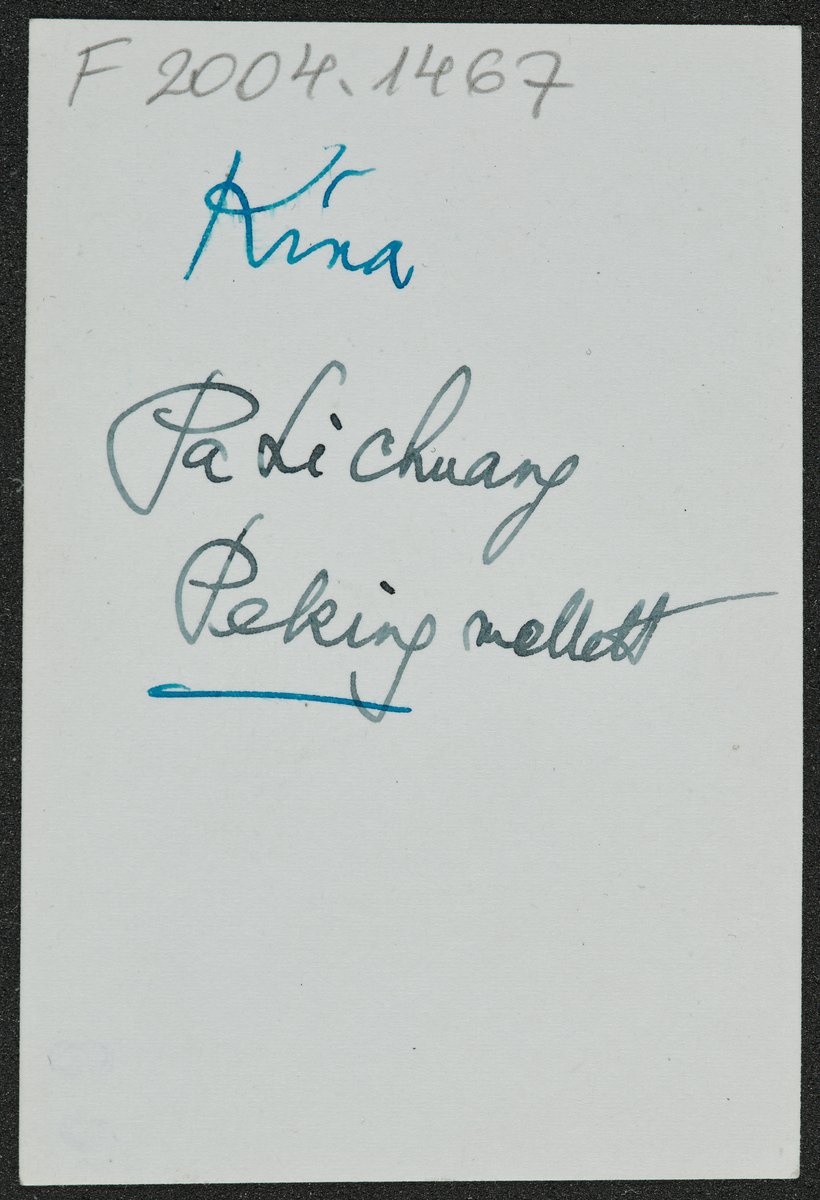 F 2004.1467
Kína
Pa Li chuang
Peking mellett